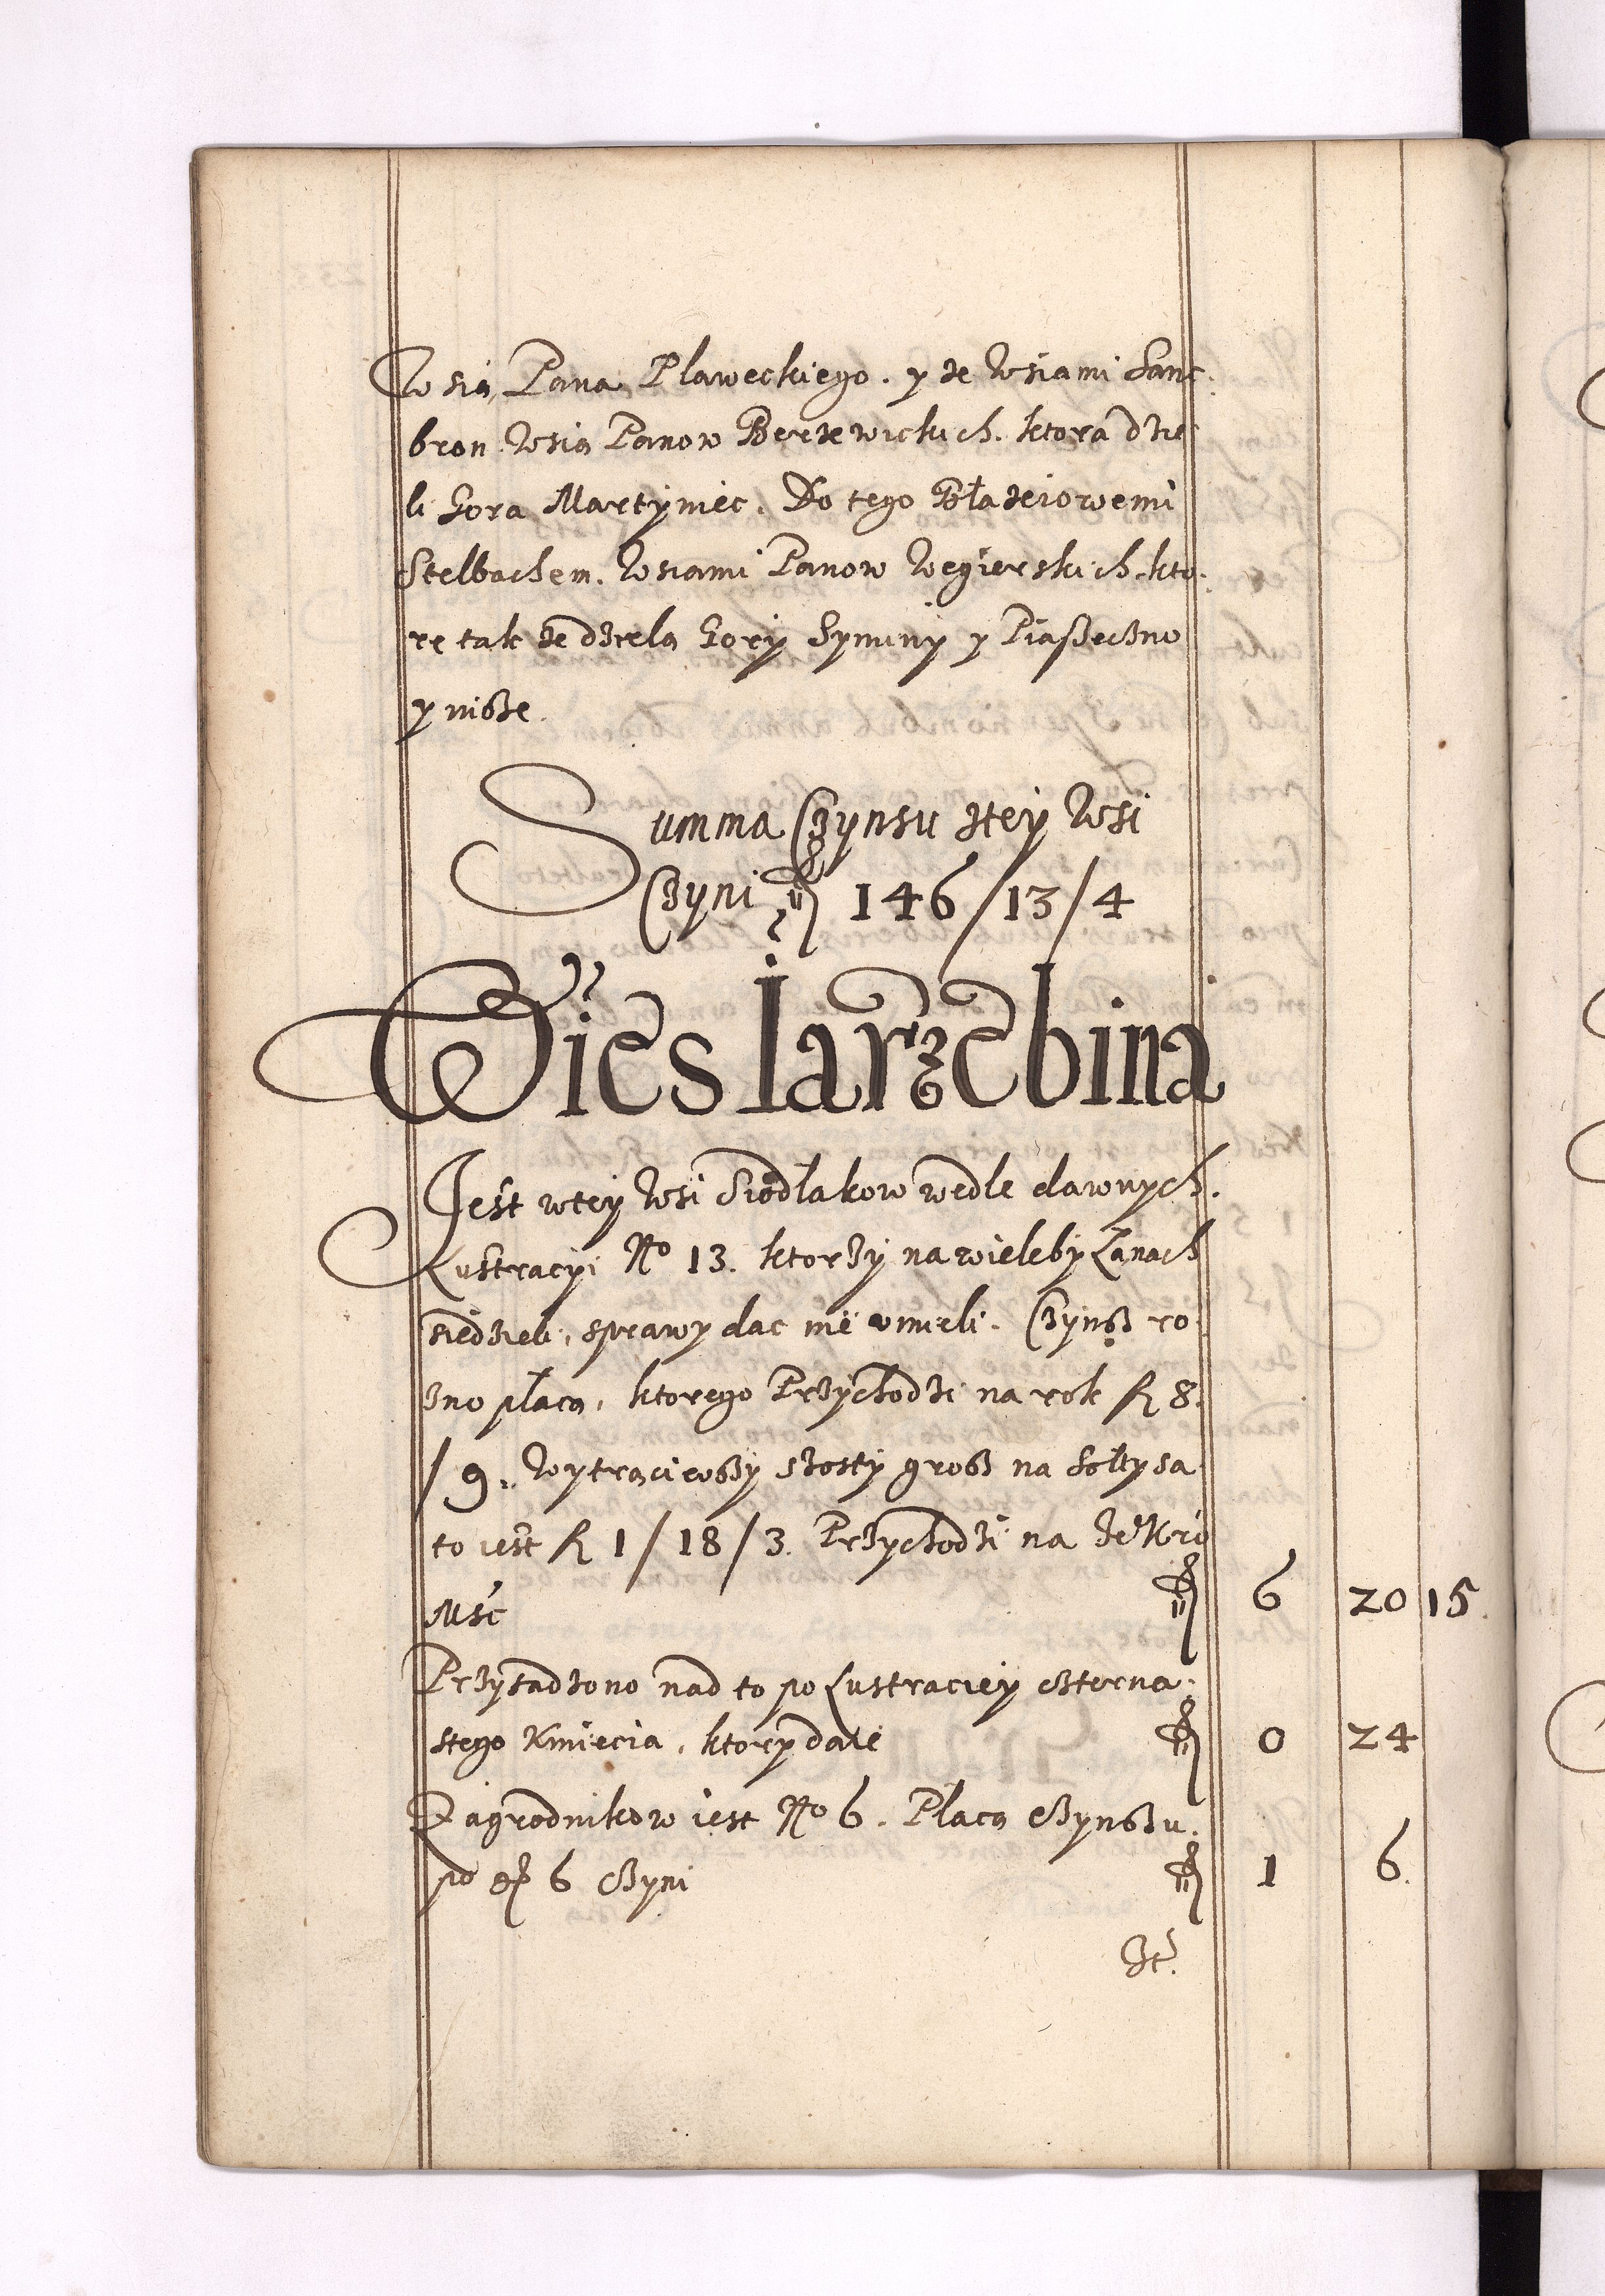 Wsią Pana Plaweckiego. y ze Wsiami Hanc
bron. Wsią Panow Berzewickich. ktorą dzie
li Gora Martyniec. Do tego Błażeiowemi
Stelbachem. Wsiami Panow Węgierskich. kto
re takze dzielą Gory Symny y Piaßeczno
y nißze.
Summa Czynsu ztey Wsi
Czyni fl 146/13/4
Wies Iarzebina
Jest wtey Wsi Siodlakow wedle dawnych.
Lustracyi No 13. ktorzy na wieleby Łanach
siedzieli, sprawy dac nie umieli. Czynßz ro
zno płacą, ktorego Przychodzi na rok fl 8.
/9. Wytrąciwßy szosty groß na Sołtysa
to iest fl 1/18/3. Przychodzi na Je Kro
Msc fl 6 20 15.
Przysadzono nad to po Lustraciey czterna.
stego Kmiecia, ktory daie fl 0 24
Zagrodnikow iest No 6. Placą Czynßu.
po gr 6 Czyni fl 1 6.